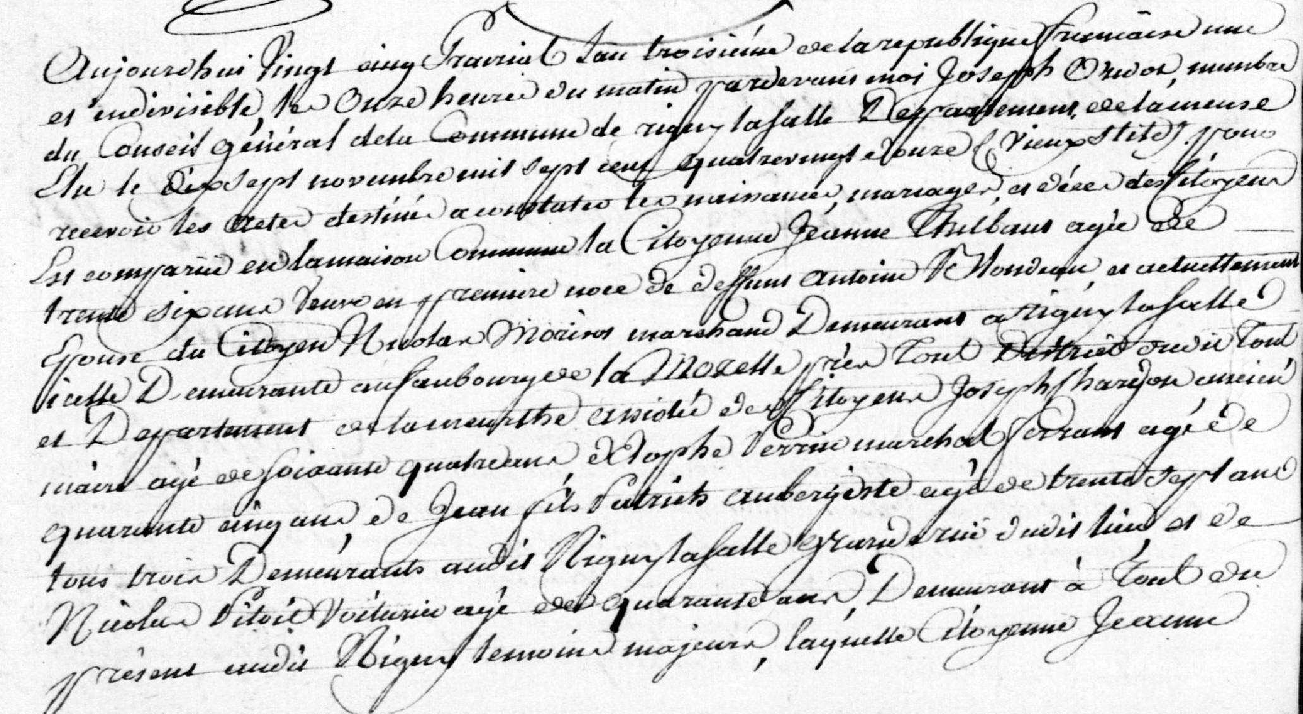 Aujourdhui vingt cinq Prairial l'an troisiéme de la republique francaise une
et indivisible, les Onze heures du matin pardevant moi Joseph Oudot, membre
du Conseil général dela Commune de rigny lasalle Deppartement, de la meuse
Elu le dix sept novembre mil sept cent quatrevingt douze (vieux stile) pour
recevoir les actes destinés a constater les naissances, mariages et décès des Citoyens
Est comparüe en la maison Commune la Citoyenne Jéanne Thiébaut agée de
trente six ans veuve en premiere noce de deffunt antoine et actuellement
Epouse du Citoyen Nicolas Morisot marchand Demeurant a rigny lasalle
icelle Demeurante au faubourg de la Mozelle près Toul District dudit Toul
et Deppartement de la meurthe assistée des Citoyens Joseph ancien
maire agé de soixante quatre ans de Perrin marchal ferrant agé de
quarante cinq ans de Jean fils Patrick aubergiste agé de trente sept ans
tous trois Demeurants audit Rigny lasalle grande rüe dudit lieu et de
Nicolas voiturier agé de quarante ans Demeurant à Toul du
présent audit Rigny temoins majeurs, laquelle Citoyenne Jeanne